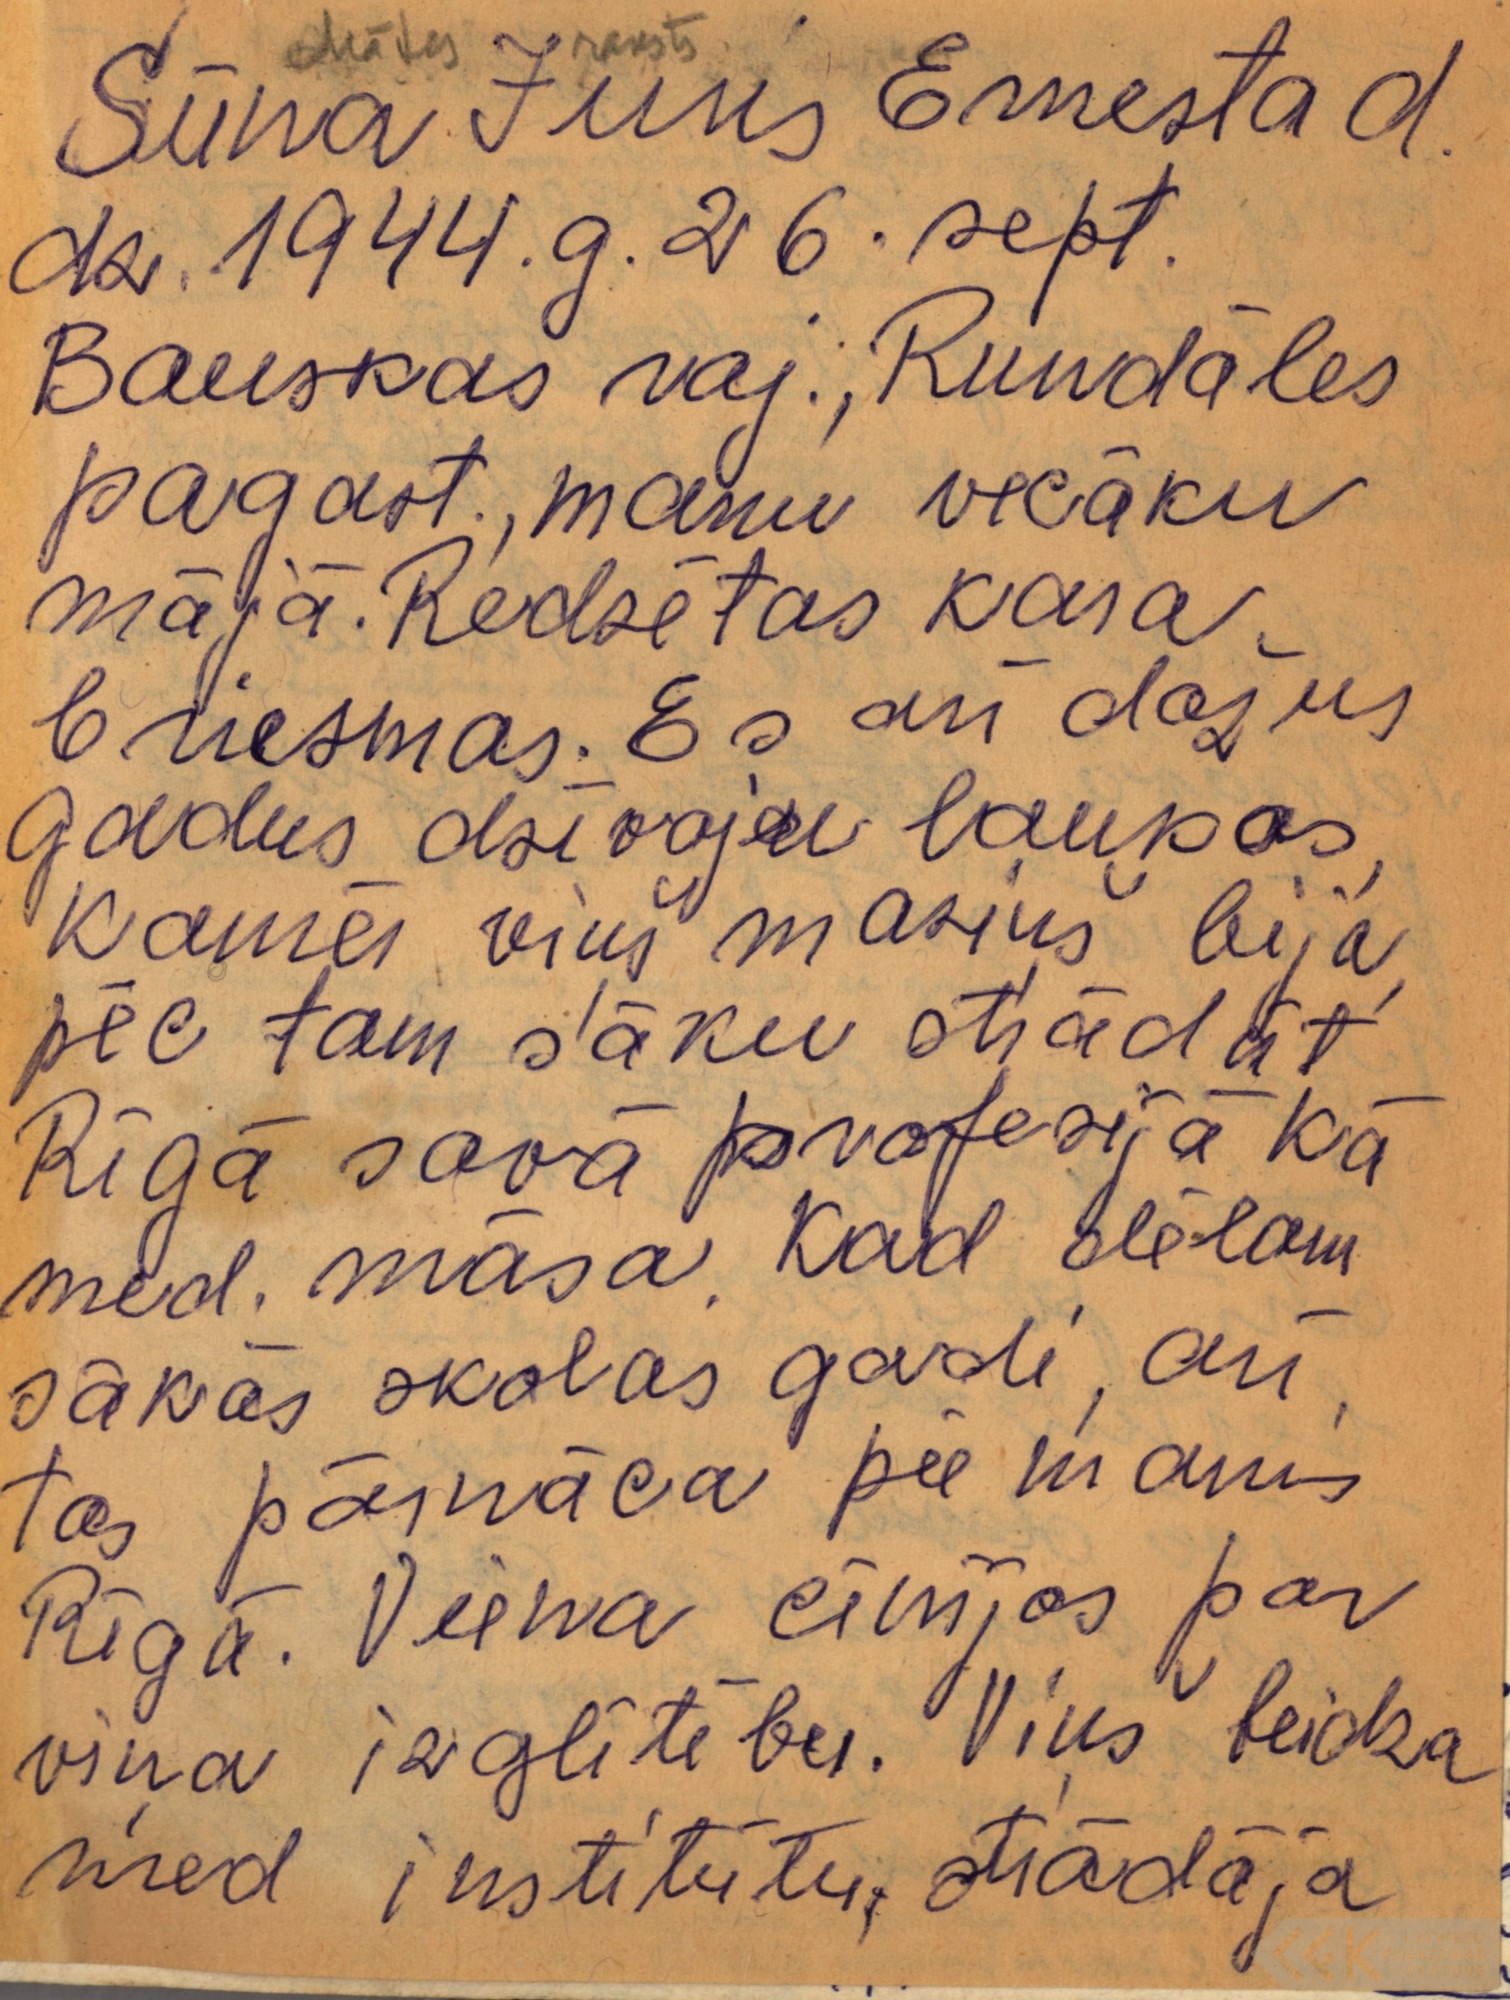 Mātes raksts
Sūna Juris Ernesta d.
dz. 1944.g. 26. sept.
Bauskas raj., Rundāles
pagast., manu vecāku
mājā. Redzētas kara
briesmas. Es arī dažus
gadus dzīvoju laukos,
kamēr viņš maziņš bija,
pēc tam sāku strādāt
Rīgā savā profesijā kā
med. māsa. Kad dēlam
sākās skolas gadi, arī
tas pārnāca pie manis
Rīgā. Viena cīnījos par
viņa izglītību. Viņš beidza
med institūtu, strādāja